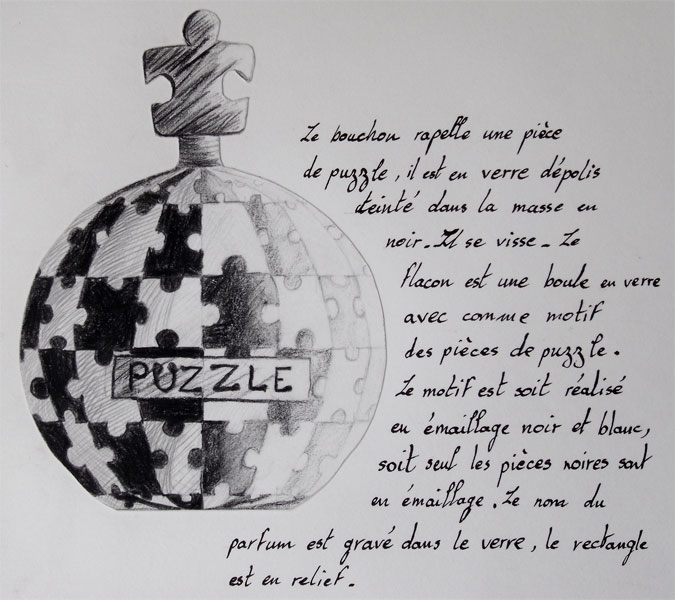 Le bouchon rapelle une pièce
de puzzle, il est en verre dépolis
teinté dans la masse en
noir. Il se visse. Le
flacon est une boule en verre
avec comme motif
des pièces de puzzle.
PUZZLE
Le motif est soit réalisé
en émaillage noir et blanc,
soit seul les pièces noires sont
en émaillage. Le nom du
parfum est gravé dans le verre, le rectangle
est en relief.